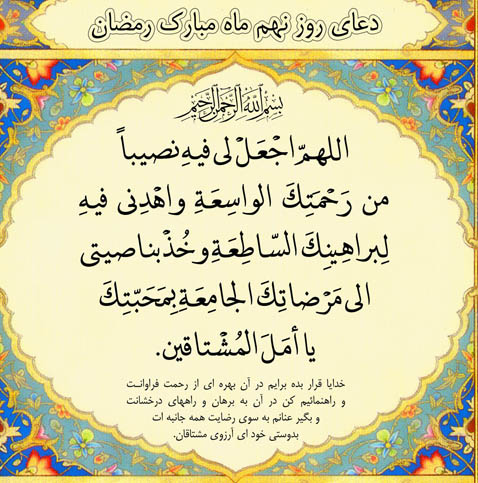 دعای روز نهم ماه مبارک رمضان
بِسْمِ اللهِ الرَّحْمٰنِ الرَّحِيمِ
اللهمّ اجْعَلْ لی فيهِ نصيباً
من رَحْمَتِكَ الواسِعَةِ واهْدِنی فيهِ
لِبراهِينِكَ السّاطِعَةِ وخُذْ بناصيتی
الی مَرْضاتِكَ الجامِعَةِ بِمَحَبّتِكَ
يا أمَلَ المُشْتاقين.
خدایا قرار بده برایم در آن بهره ای از رحمت فراوانت
و راهنمائیم کن در آن به برهان و راههای درخشانت
و بگیر عنانم به سوی رضایت همه جانبه ات
بدوستی خود ای آرزوی مشتاقان.